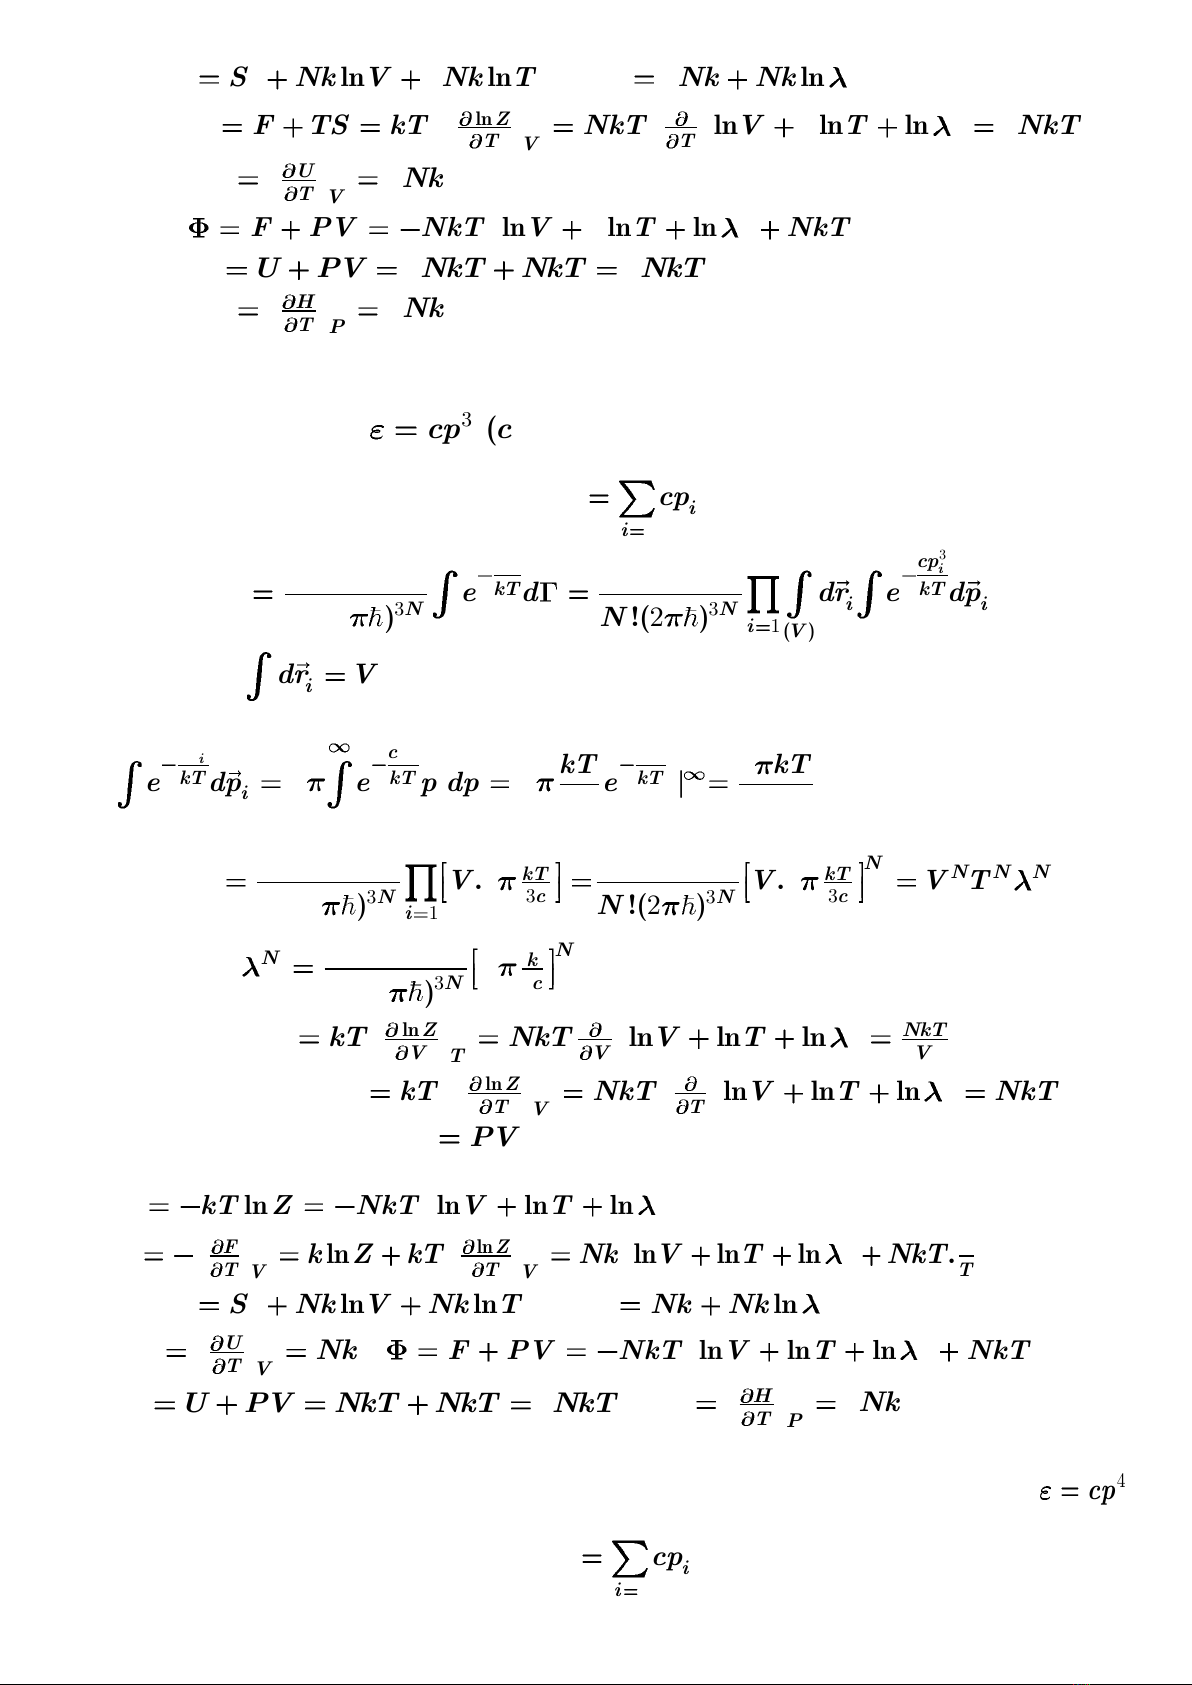 = S + Nk ln V + Nk ln T = Nk + Nk ln λ
= F + TS = kT ∂ ln Z/∂T V = NkT ∂/∂T ln V + ln T + ln λ = NkT
= ∂U/∂T V = Nk
Φ = F + PV = −NkT ln V + ln T + ln λ + NkT
= U + PV = NkT + NkT = NkT
= ∂H/∂T P = Nk
ε = cp³ (c
= ∑ i= cp i
= πℏ)³ᴺ ∫ e − kT dΓ = N!(2πℏ)³ᴺ ∏ i=1 ∫ (V) dr⃗ i ∫ e − cp i ³/kT dp⃗ i
∫ dr⃗ i = V
∫ e − i kT dp⃗ i = π ∫ ∞ e − c kT p dp = π kT e − kT |∞ = πkT
= πℏ)³ᴺ ∏ i=1 [V. π kT/3c] = N!(2πℏ)³ᴺ [V. π kT/3c]ᴺ = VᴺTᴺλᴺ
λᴺ = πℏ)³ᴺ [ π k/c]ᴺ
= kT ∂ ln Z/∂V T = NkT ∂/∂V ln V + ln T + ln λ = NkT/V
= kT ∂ ln Z/∂T V = NkT ∂/∂T ln V + ln T + ln λ = NkT
= PV
= −kT ln Z = −NkT ln V + ln T + ln λ
= − ∂F/∂T V = k ln Z + kT ∂ ln Z/∂T V = Nk ln V + ln T + ln λ + NkT. /T
= S + Nk ln V + Nk ln T = Nk + Nk ln λ
= ∂U/∂T V = Nk Φ = F + PV = −NkT ln V + ln T + ln λ + NkT
= U + PV = NkT + NkT = NkT = ∂H/∂T P = Nk
ε = cp⁴
= ∑ i= cp i